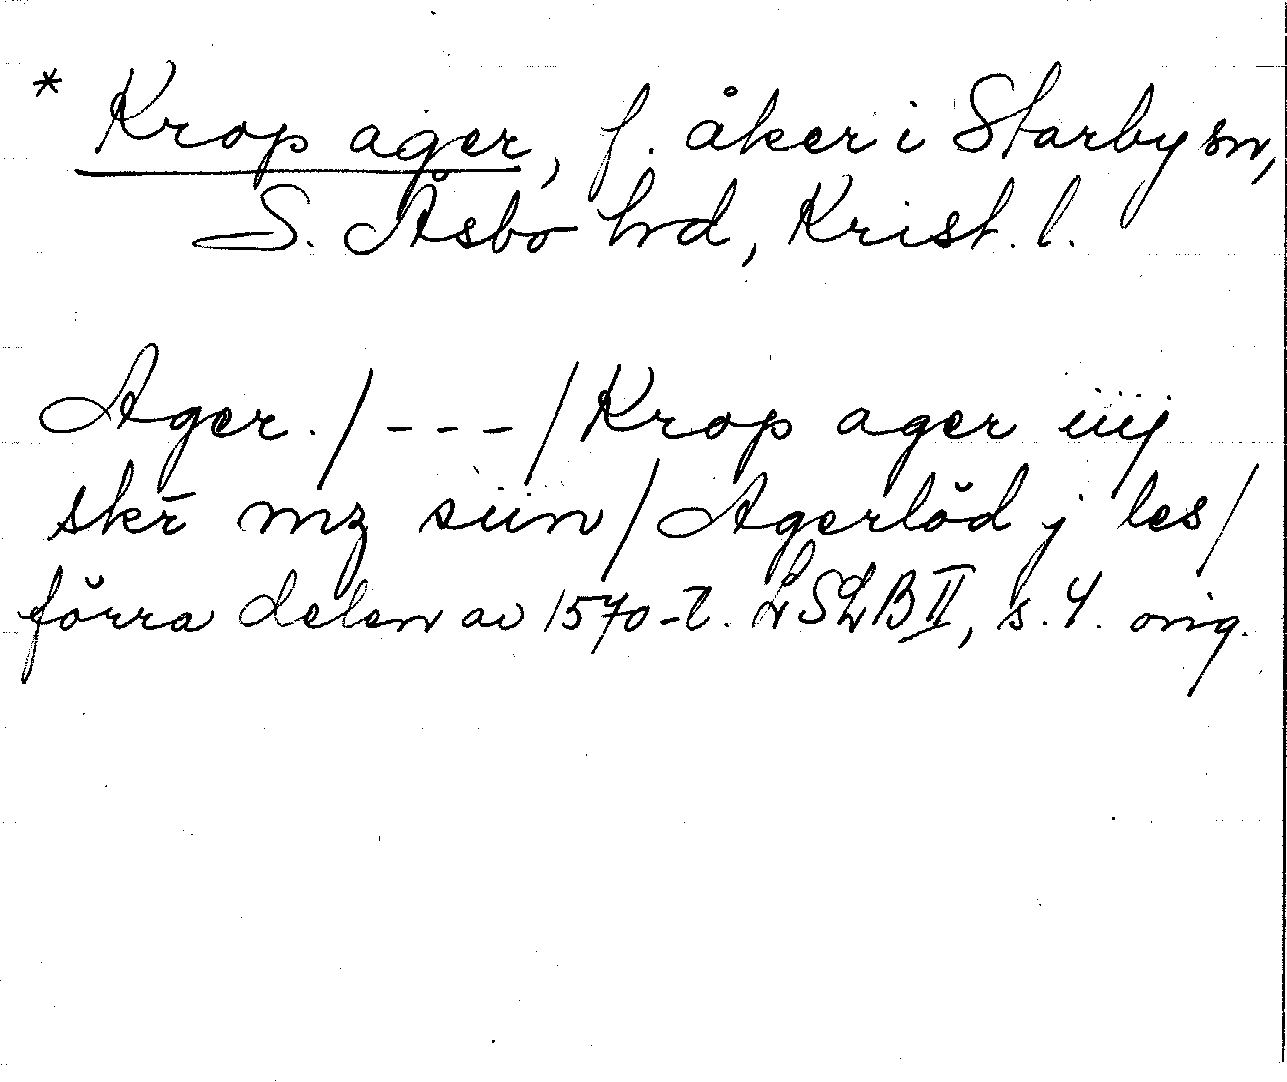 * Krop ager, f. åker i Starby sn,
S. Åsbo hd, Krist. l.
Ager./---/Krop ager iiij
skr̄ mz siin/Agerlöd j les/
förra delen av 1570-t. LSLB II, s. 4. orig.